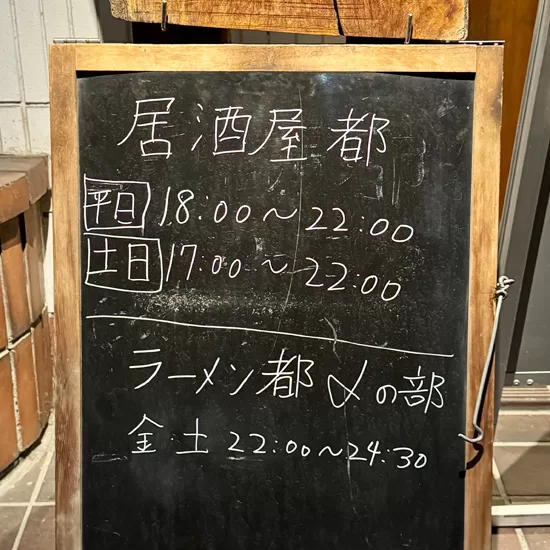 居酒屋 都
平日 18:00～22:00
土日 17:00～22:00
ラーメン都 〆の部
金・土 22:00～24:30